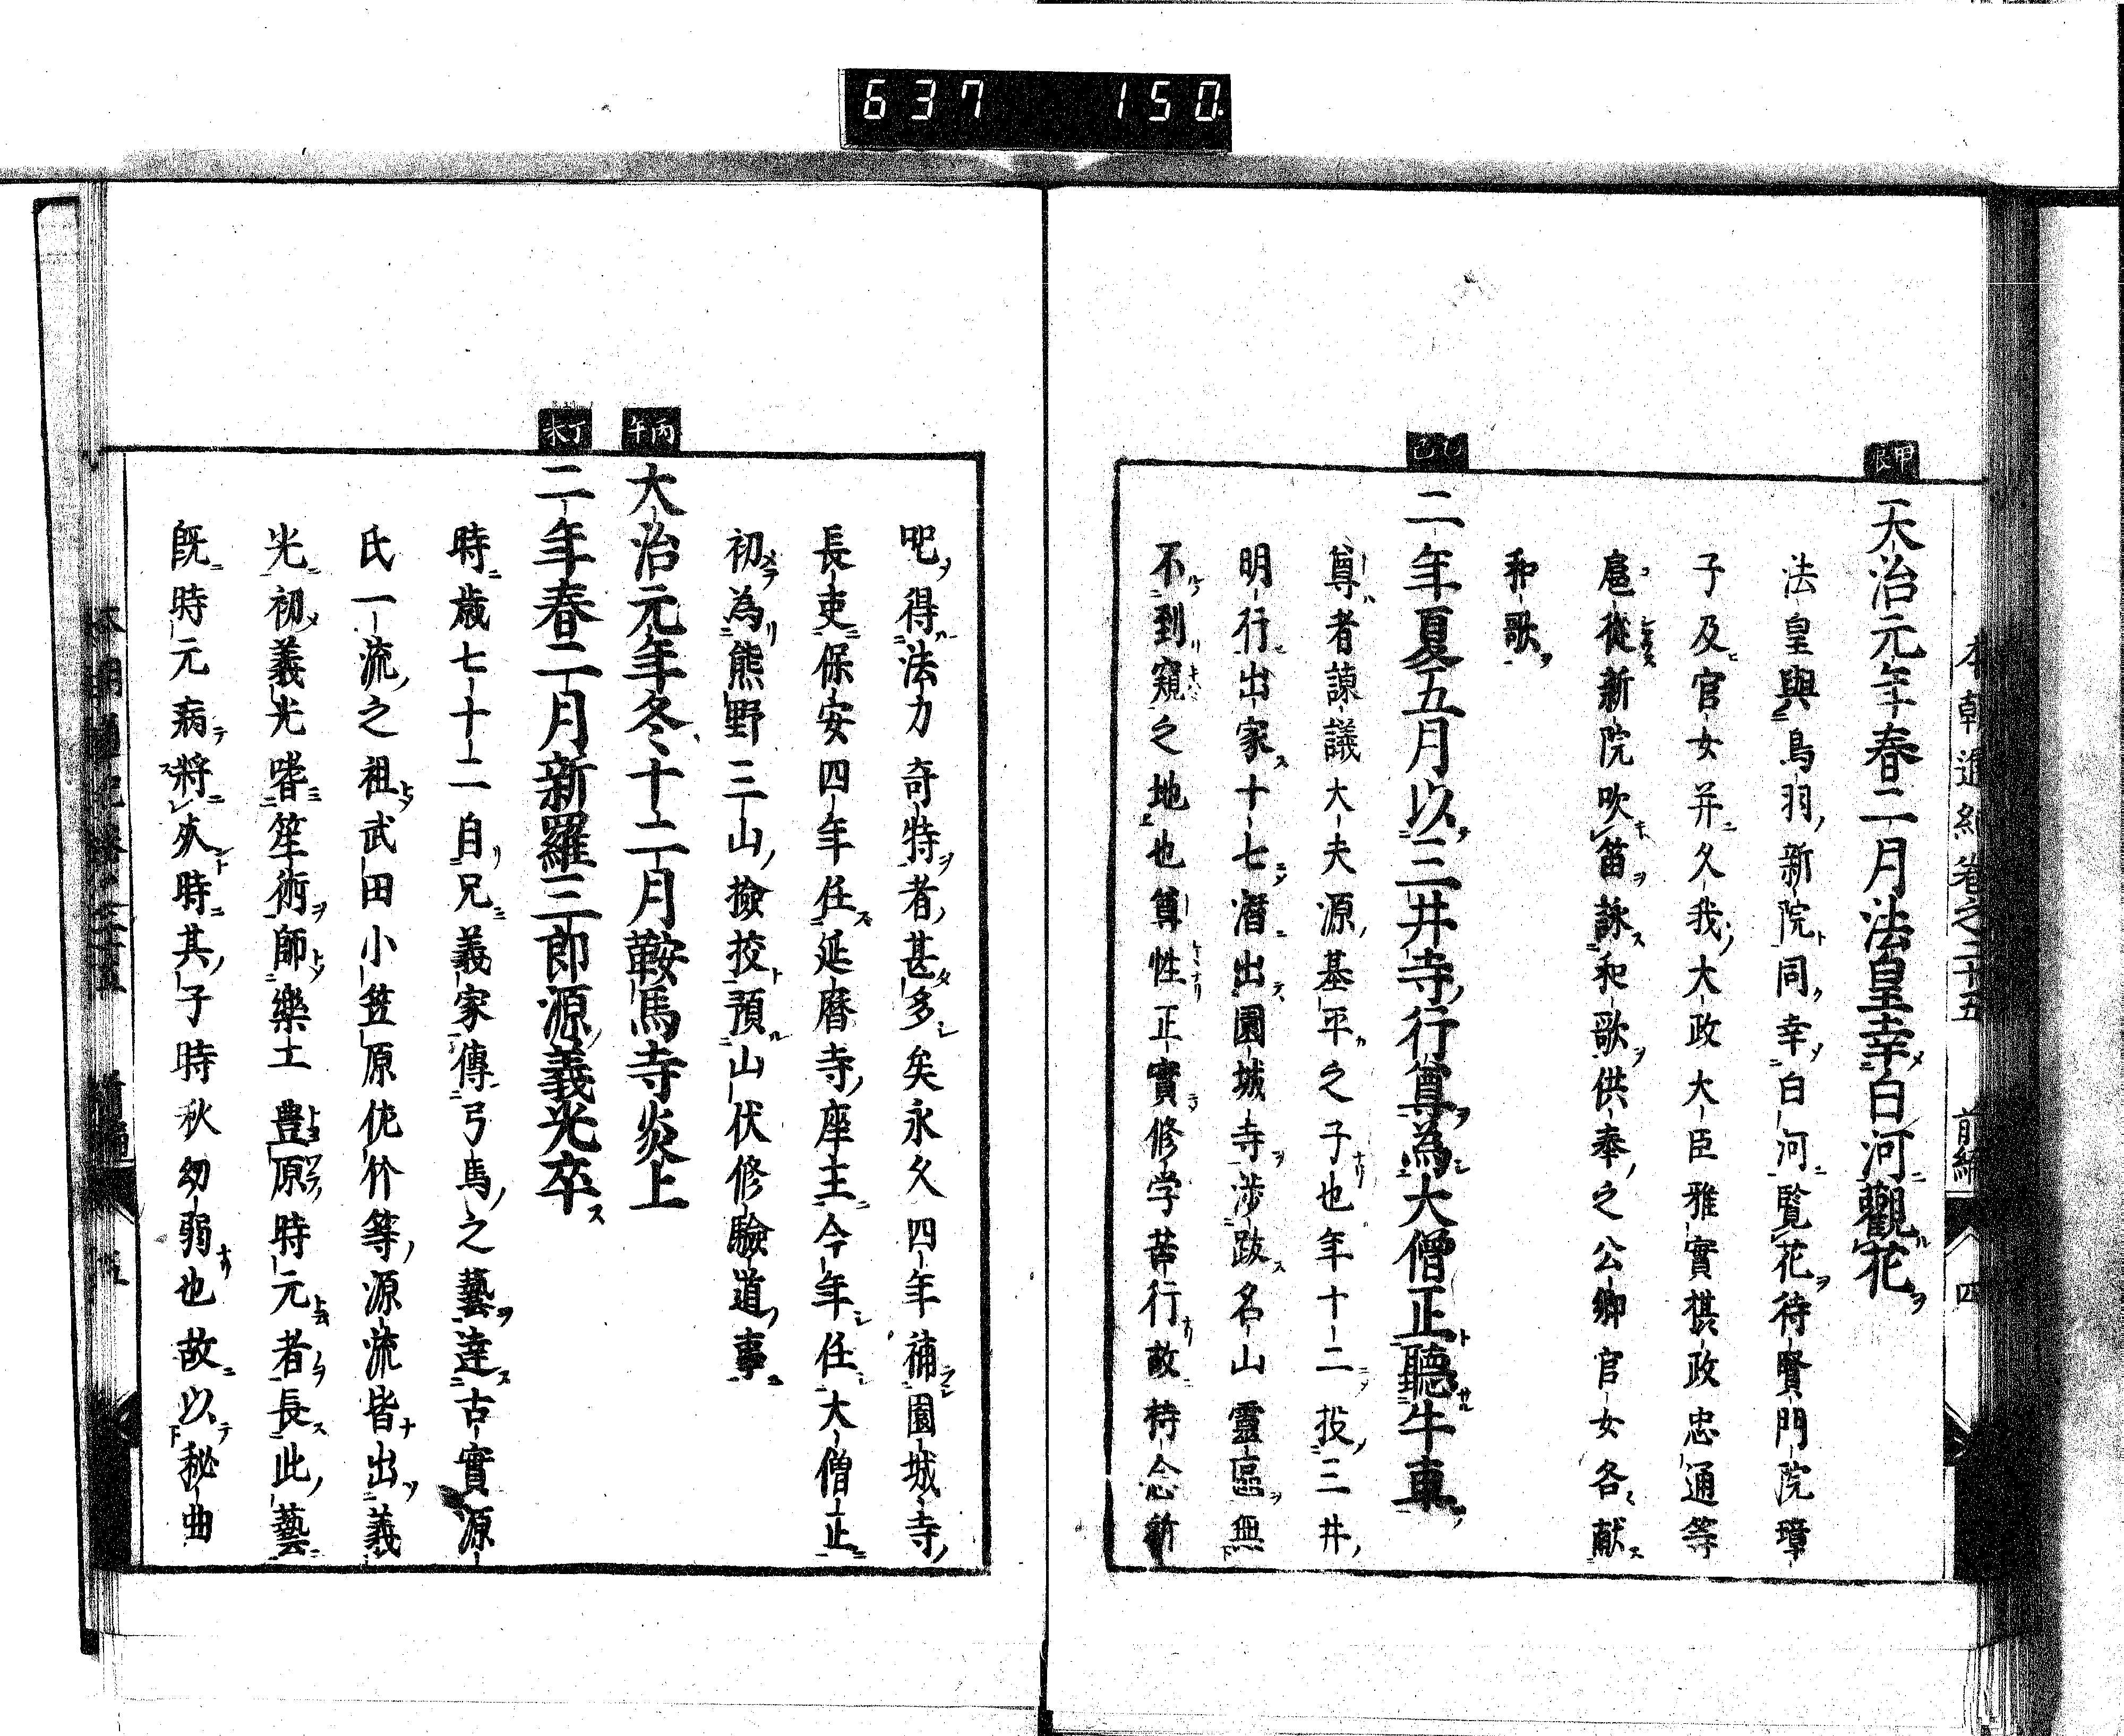 637 150
本朝通紀卷之二十五 前編 四
甲辰
天治元年春二月法皇幸白河觀花
法皇與鳥羽新院同幸白河覧花待賢門院璋
子及官女并久我大政大臣雅實摂政忠通等
扈從新院吹笛詠和歌供奉之公卿官女各献
和歌
乙巳
二年夏五月以三井寺行尊為大僧正聽牛車
尊者諫議大夫源基平之子也年十二投三井
明行出家十七潜出園城寺渉跋名山靈區無
不到窺之地也尊性正實修学苦行故持念新
呪得法力奇特者甚多矣永久四年補園城寺
長吏保安四年任延暦寺座主今年任大僧正
初為熊野三山撿挍預山伏修驗道事
丙午
大治元年冬十二月鞍馬寺炎上
丁未
二年春二月新羅三郎源義光卒
時歳七十二自兄義家傳弓馬之藝達古實源
氏一流之祖武田小笠原佐竹等源流皆出義
光初義光嗜笙術師樂士豊原時元者長此藝
既時元病将死時其子時秋幼弱也故以秘曲